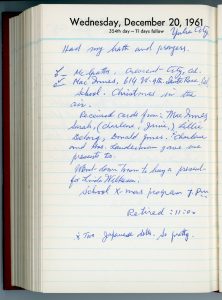 Wednesday, December 20, 1961
354th day — 11 days follow
Yuba City
Had my bath and prayers.
Mc Crescent City, Cal.
Mae Innes, 614 W. 9th
School. Christmas in the
air.
Received cards from: Mae Innes
Sarah, (Charlene, Janie,) Lillie
Donald Jones. Charlene
and Mrs. Lauderman gave me
presents to.
Went down town to buy a present
for Linda
School X-mas program 7. P.M.
Retired: 11:00
* Two Japanese dolls. So pretty.